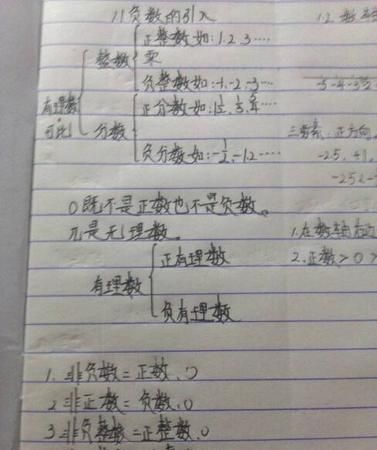 1.1负数的引入
正整数如:1.2.3····
整数 零
负整数如:-1.-2.-3····
有理数
可比
正分数如:
分数
负分数如:-1/2.-1.2·····
0既不是正数也不是负数。
π是无理数。
正有理数
有理数
负有理数
1.非负数=正数、0
2.非正数=负数、0
3.非负整数=正整数、0
1.2.数
-5-4-3
三要素:正方向
-2.5.
1.在数轴
2.正数>0>